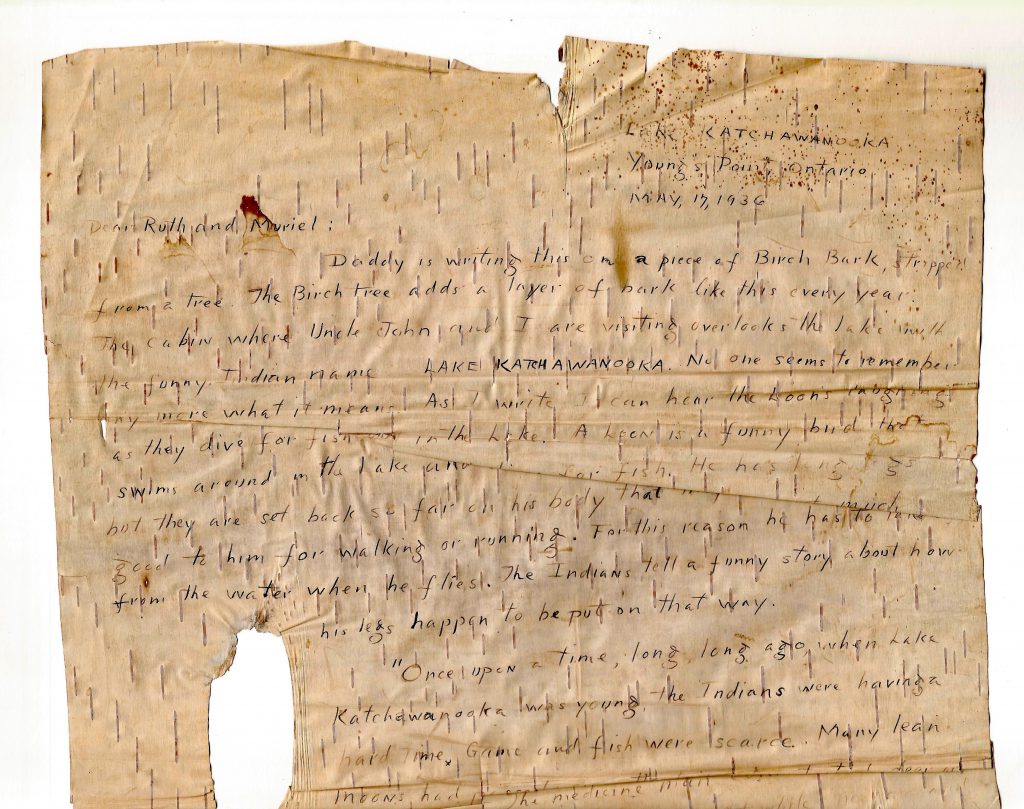 Lake KATCHAWANOOKA
Young's Point, Ontario
MAY, 17, 1936
Dear Ruth and Muriel:
Daddy is writing this on a piece of Birch Bark, stripped
from a tree. The Birch tree adds a layer of bark like this every year.
The cabin where Uncle John and I are visiting overlooks the lake with
the funny Indian name LAKE KATCHAWANOOKA. No one seems to remember
any more what it means. As I write I can hear the Loons laughing
as they dive for fish in the Lake. A Loon is a funny bird that
swims around in the lake and for fish. He has long legs
but they are set back so far on his body that much
good to him for walking or running. For this reason he has to
from the water when he flies. The Indians tell a funny story about how
his legs happen to be put on that way.
"Once upon a time, long, long ago, when Lake
Katchawanooka was young, the Indians were having a
hard time. Game and fish were scarce. Many lean
moons had The medicine man